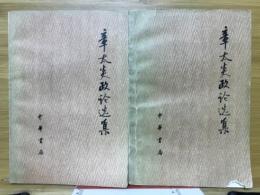 章太炎政论选集
中华书局
章太炎政论选集
中华书局